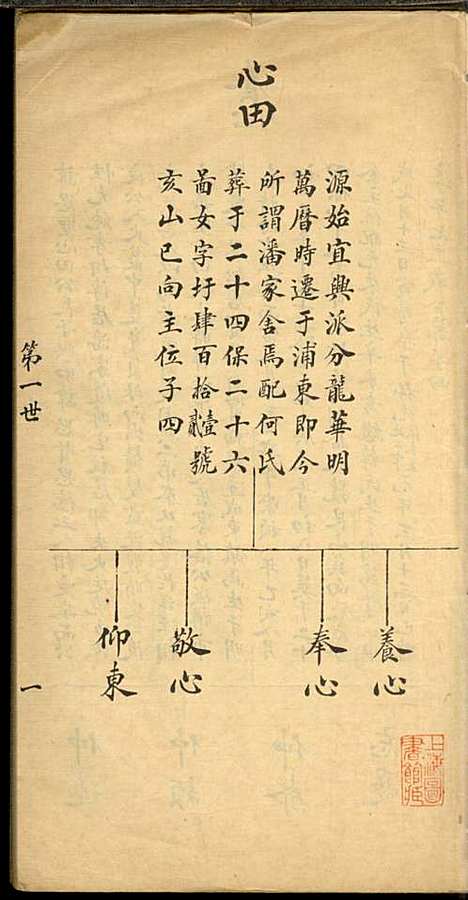 心田
源始宜興派分龍華明
萬曆時遷于浦東即今
所謂潘家舍焉配何氏
葬于二十四保二十六
啚女字圩肆百拾貳壹號
亥山巳向主位子四
養心
奉心
敬心
仰東
第一世
一
上海圖書館藏